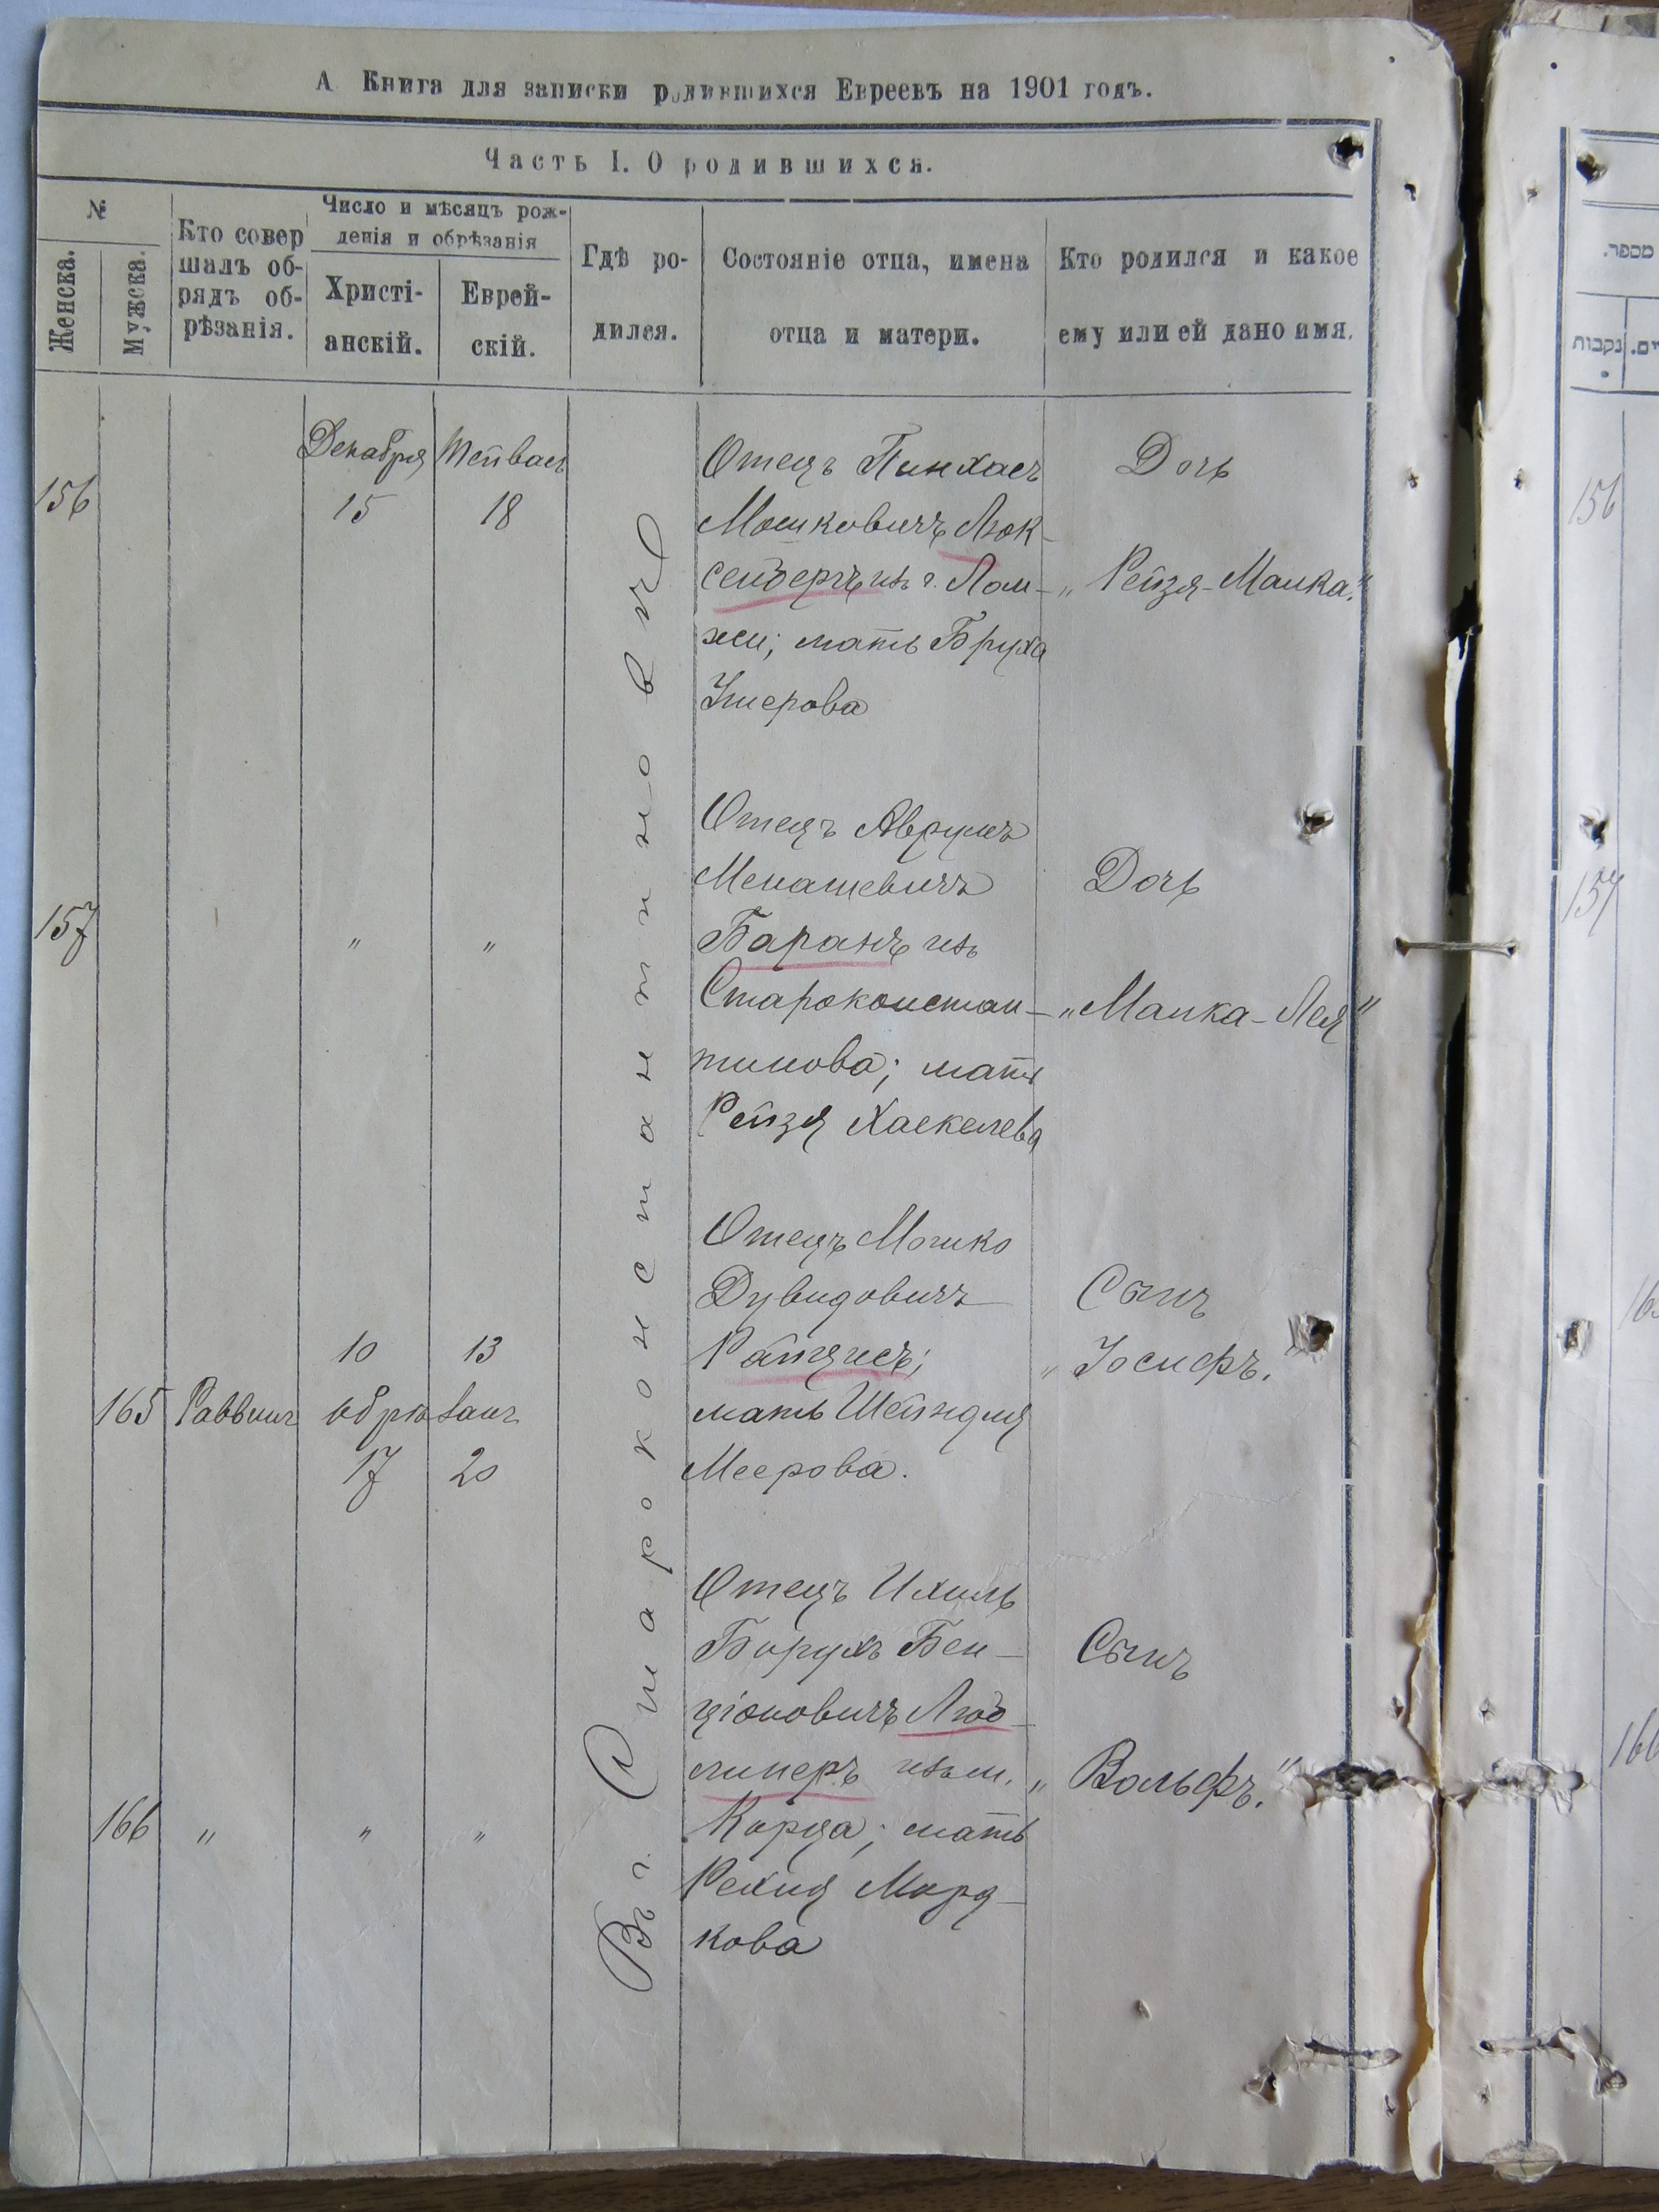 А. Книга для записки родившихся Евреевъ на 1901 годъ.
Часть I. О родившихся.
№
Женска.
Мужска.
Кто совер
шалъ об-
рядъ об-
рѣзанія.
Число и мѣсяцъ рож-
денія и обрѣзанія
Христі-
анскій.
Еврей-
скій.
Гдѣ ро-
дился.
Состояніе отца, имена
отца и матери.
Кто родился и какое
ему или ей дано имя.
Въ г. Староконстантиновѣ
156
Декабря
15
Тейвась
18
Отецъ Пинхасъ
Мошковичъ Люк-
сенберъ изъ г. Лом-
жи; мать Бруха
Ушерова
Дочь
„Рейзя-Малка."
157
" "
Отецъ Аврумъ
Менашевичъ
Баранъ изъ
Староконстан-
тинова; мать
Рейзя Хаскелева
Дочь
„Малка-Лея"
165 Раввинъ
10 13
обрѣзанъ
17 20
Отецъ Мошко
Дувидовичъ
мать Шейндля
Меерова.
Сынъ
„Іосифъ."
166 " " "
Отецъ Ихиль
Борухъ Бен-
ціоновичъ Люб-
линеръ изъ м.
Корца; мать
Рехля Морд-
кова
Сынъ
„Вольфъ."
מספר.
נקבות
156
157
165
166